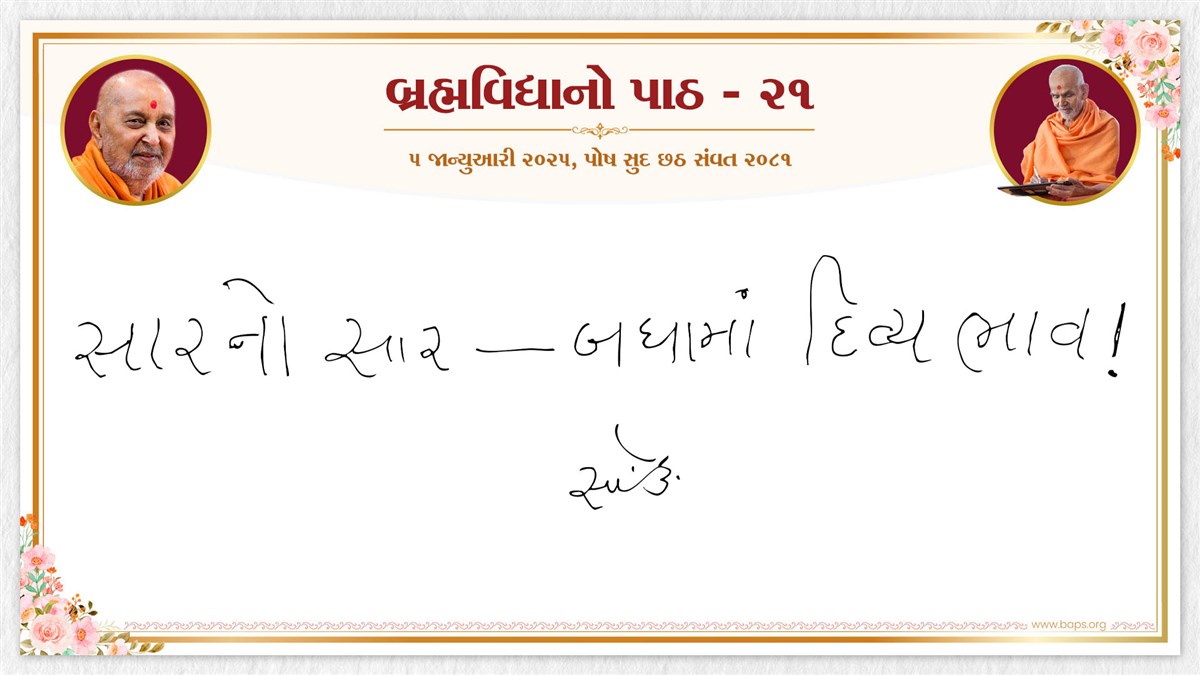 બ્રહ્મવિદ્યાનો પાઠ - ૨૧
૫ જાન્યુઆરી ૨૦૨૫, પોષ સુદ છઠ સંવત ૨૦૮૧
સારનો સાર — બધામાં દિવ્ય ભાવ!
www.baps.org